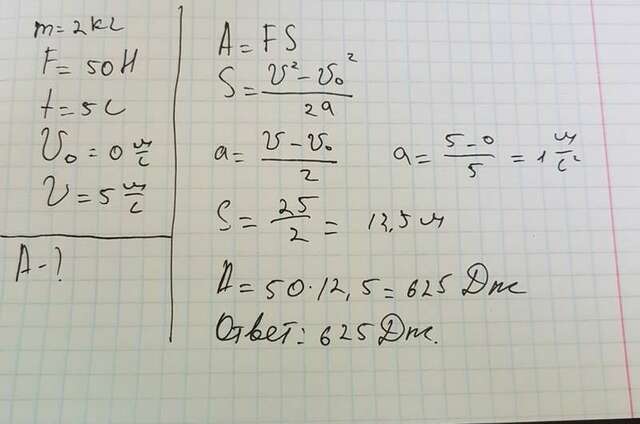 m = 2 кг
F = 50 Н
t = 5 с
V₀ = 0 м/с
V = 5 м/с
A - ?
A = FS
S = (V² - V₀²)/2a
a = (V - V₀)/2
a = (5 - 0)/5 = 1 м/с²
S = 25/2 = 13,5 м
A = 50 · 12,5 = 625 Дж
Ответ: 625 Дж.